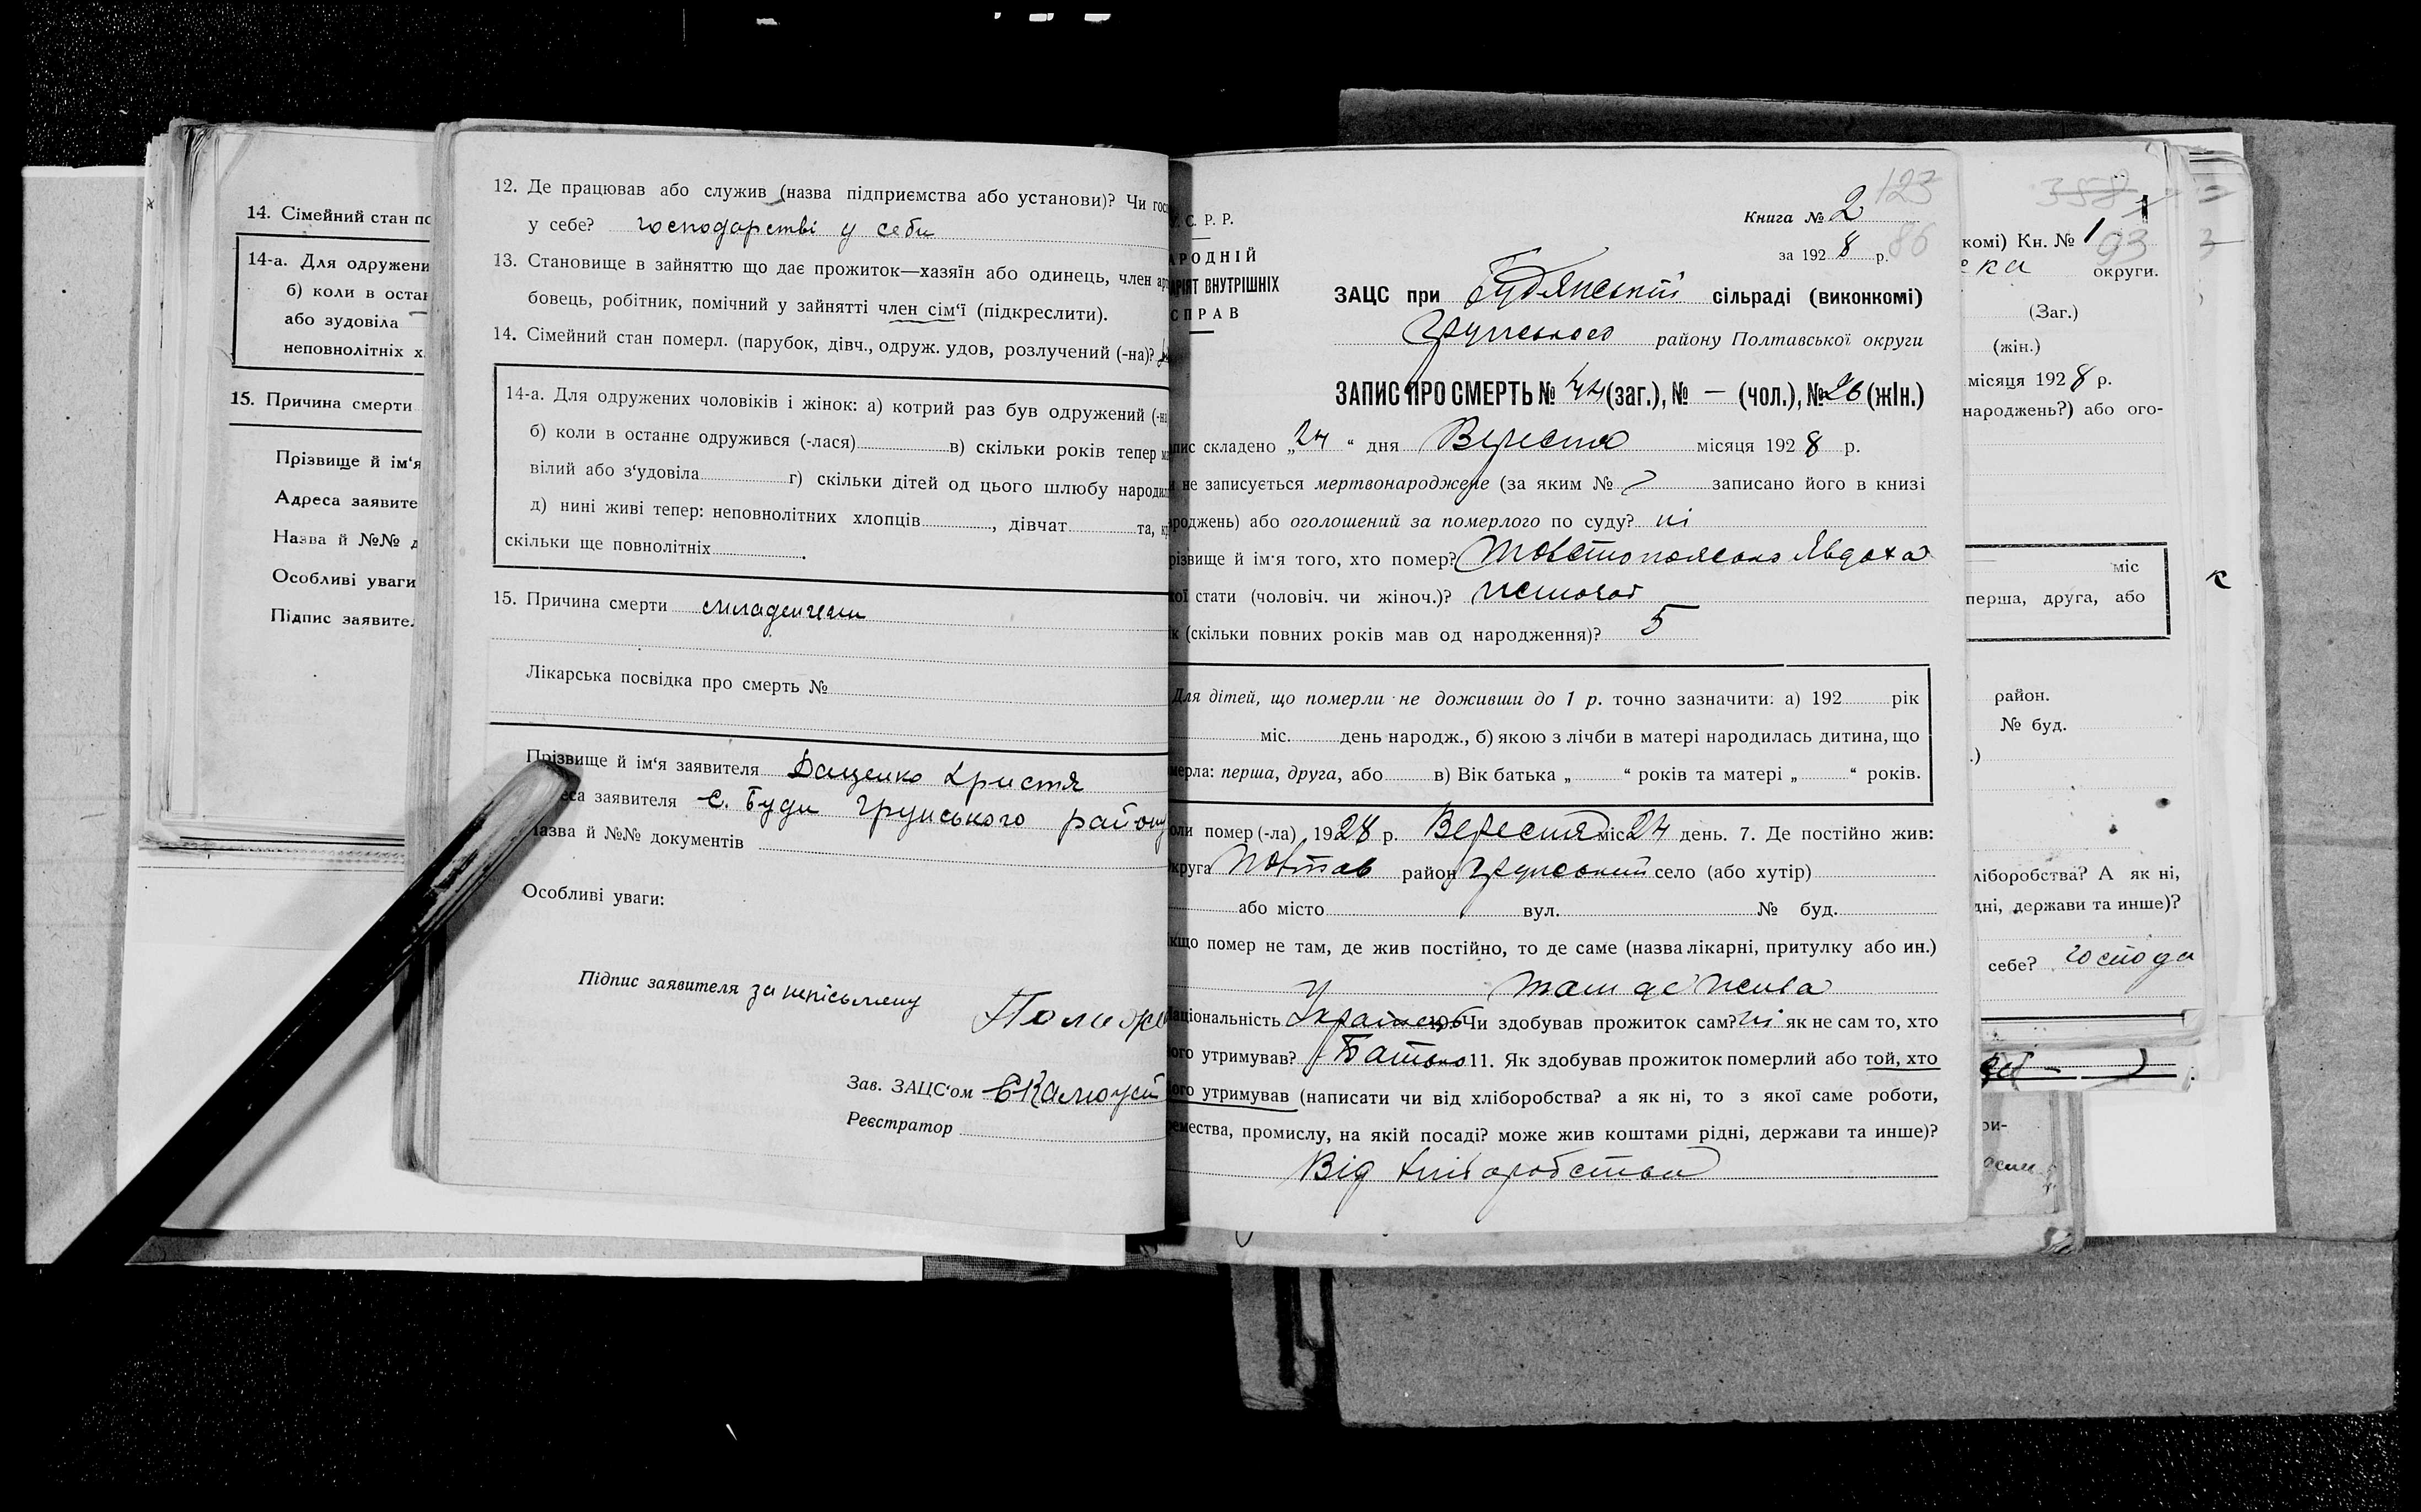 14. Сімейний стан по
14-а. Для одружени
б) коли в остан
або зудовіла
неповнолітніх х
15. Причина смерти
Прізвище й ім‘я
Адреса заявите
Назва й №№ д
Особливі уваги
Підпис заявите
12. Де працював або служив (назва підприємства або установи)? Чи гос
у себе? господарстві у себи
13. Становище в зайняттю що дає прожиток—хазяїн або одинець, член ар
бовець, робітник, помічний у зайнятті член сім‘ї (підкреслити).
14. Сімейний стан померл. (парубок, дівч., одруж. удов, розлучений (-на)?
14-а. Для одружених чоловіків і жінок: а) котрий раз був одружений (-на
б) коли в останнє одружився (-лася) в) скільки років тепер м
вілий або з‘удовіла г) скільки дітей од цього шлюбу народил
д) нині живі тепер: неповнолітних хлопців, дівчат та, кр
скільки ще повнолітніх.
15. Причина смерти младенчеш
Лікарська посвідка про смерть №
Прізвище й ім‘я заявителя Даценко Христя
еса заявителя с. Буди Грунського району
азва й №№ документів
Особливі уваги:
Підпис заявителя за неписьмену
Зав. ЗАЦС‘ом
Реєстратор
С. Р. Р.
АРОДНІЙ
АРІЯТ ВНУТРІШНІХ
СПРАВ
123
Книга № 2
86
за 192 8 р.
ЗАЦС при Будянській сільраді (виконкомі)
Грунського району Полтавської округи
ЗАПИС ПРО СМЕРТЬ № 44 (заг.), № — (чол.), № 26 (жін.)
пис складено „24“ дня Вересня місяця 192 8 р.
и не записується мертвонароджене (за яким № записано його в книзі
роджень) або оголошений за померлого по суду? ні
різвище й ім‘я того, хто помер? Товстопясько Явдоха
кої стати (чоловіч. чи жіноч.)? жіночої
к (скільки повних років мав од народження)? 5
Для дітей, що померли не доживши до 1 р. точно зазначити: а) 192 рік
міс. день народж., б) якою з лічби в матері народилась дитина, що
мерла: перша, друга, або в) Вік батька „ “ років та матері „ “ років.
оли помер (-ла) 1928 р. Вересня міс 24 день. 7. Де постійно жив:
круга Полтав район Грунський село (або хутір)
або місто вул. № буд.
кщо помер не там, де жив постійно, то де саме (назва лікарні, притулку або ин.)
там де жила
аціональність Україн 10. Чи здобував прожиток сам? ні як не сам то, хто
ого утримував? Батько 11. Як здобував прожиток померлий або той, хто
ого утримував (написати чи від хліборобства? а як ні, то з якої саме роботи,
емества, промислу, на якій посаді? може жив коштами рідні, держави та инше)?
Від хліборобства
358
комі) Кн. № 1
93
ека округи.
(Заг.)
(жін.)
місяця 192 8 р.
народжень?) або ого-
міс
перша, друга, або
район.
№ буд.
.)
ліборобства? А як ні,
дні, держави та инше)?
себе? господа
ри-
к